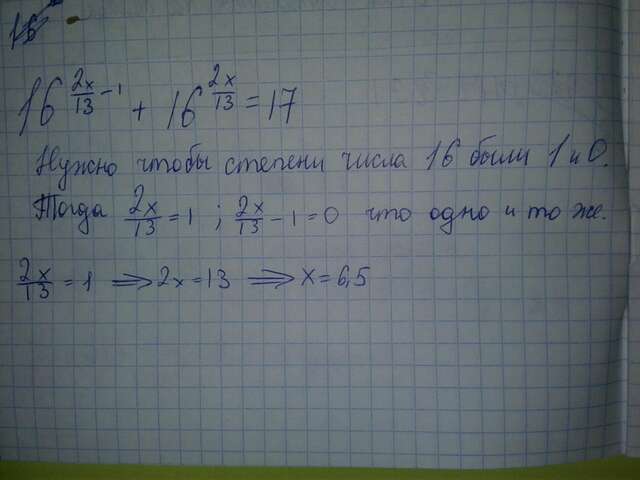 16^(2x/13 - 1) + 16^(2x/13) = 17
Нужно чтобы степени числа 16 были 1 и 0.
Тогда 2x/13 = 1 ; 2x/13 - 1 = 0 что одно и то же.
2x/13 = 1 ⟹ 2x = 13 ⟹ x = 6,5